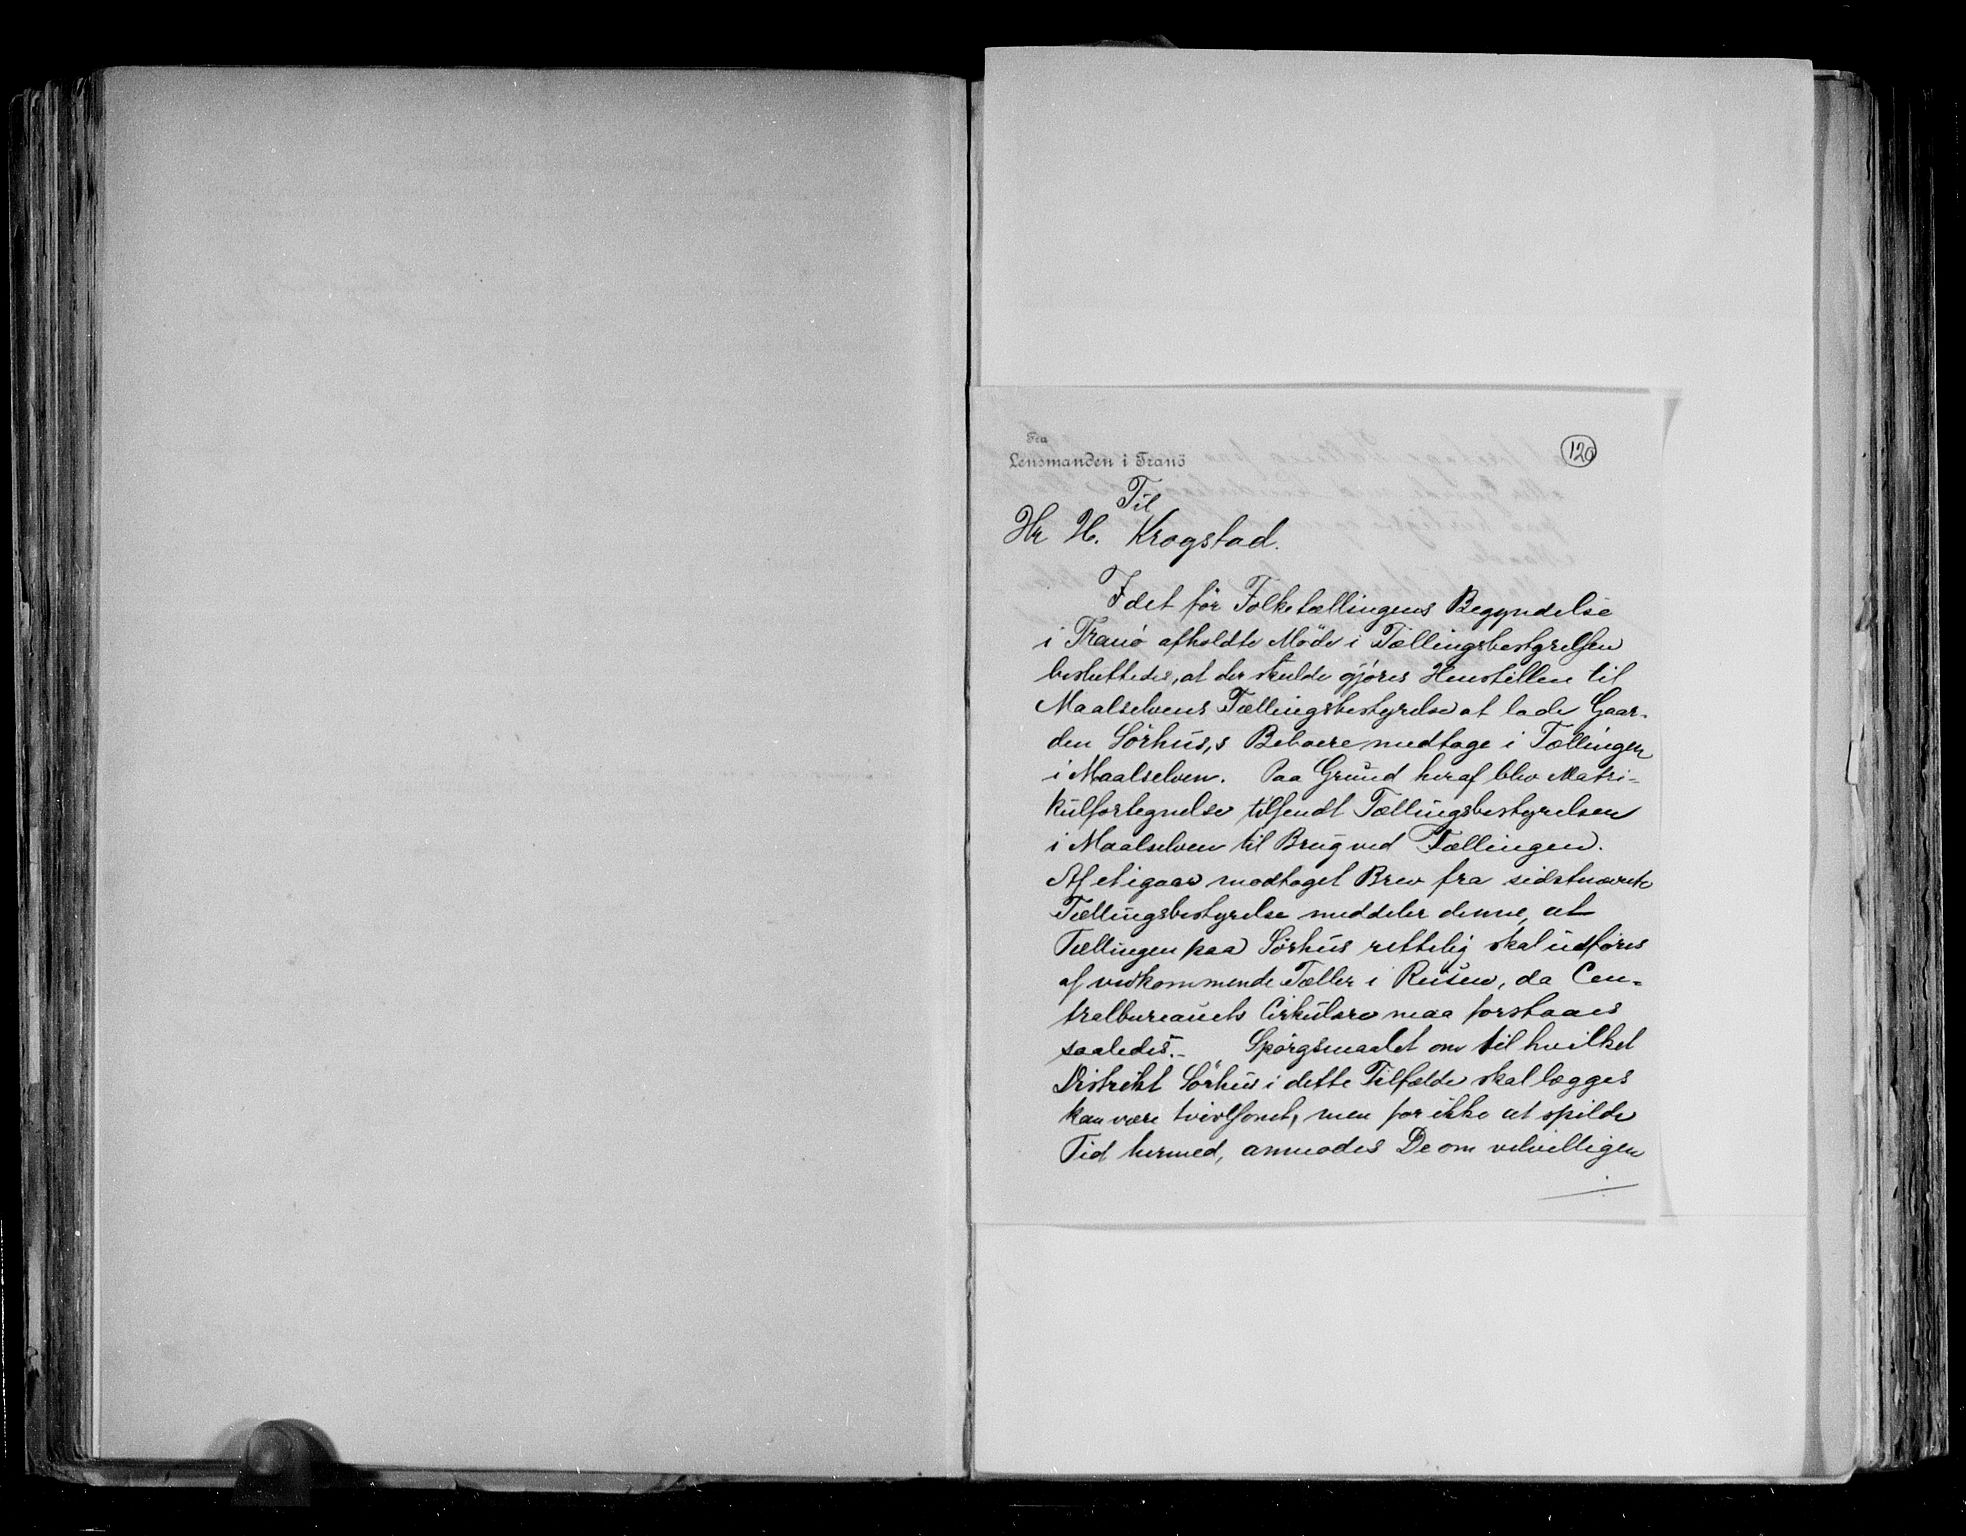 120
Fra
Lensmanden i Tranö
Til
Hr H. Krogstad.
I det för Folketællingens Begyndelse
i Tranö afholdte Möde i Tællingsbestyrelsen
besluttedes, at der skulde gjöres Henstillen til
Maalselvens Tællingsbestyrelse at lade Gaar-
den Sörhus,s Beboere medtage i Tællingen
i Maalselven. Paa Grund heraf blev Matri-
kulfortegnelse tilsendt Tællingsbestyrelsen
i Maalselven til Brug ved Tællingen.
Af et igaar modtaget Brev fra sidstnævnte
Tællingsbestyrelse meddeler denne, at
Tællingen paa Sörhus rettelig skal udföres
af vedkommende Tæller i Reisen, da Cen-
tralbureauets Cirkulære maa forstaaes
saaledes.- Spörgsmaalet om til hvilket
Distrikt Sörhus i dette Tilfælde skal lægges
kan være tvivlsomt, men for ikke at spilde
Tid hermed, anmodes De om velvilligen